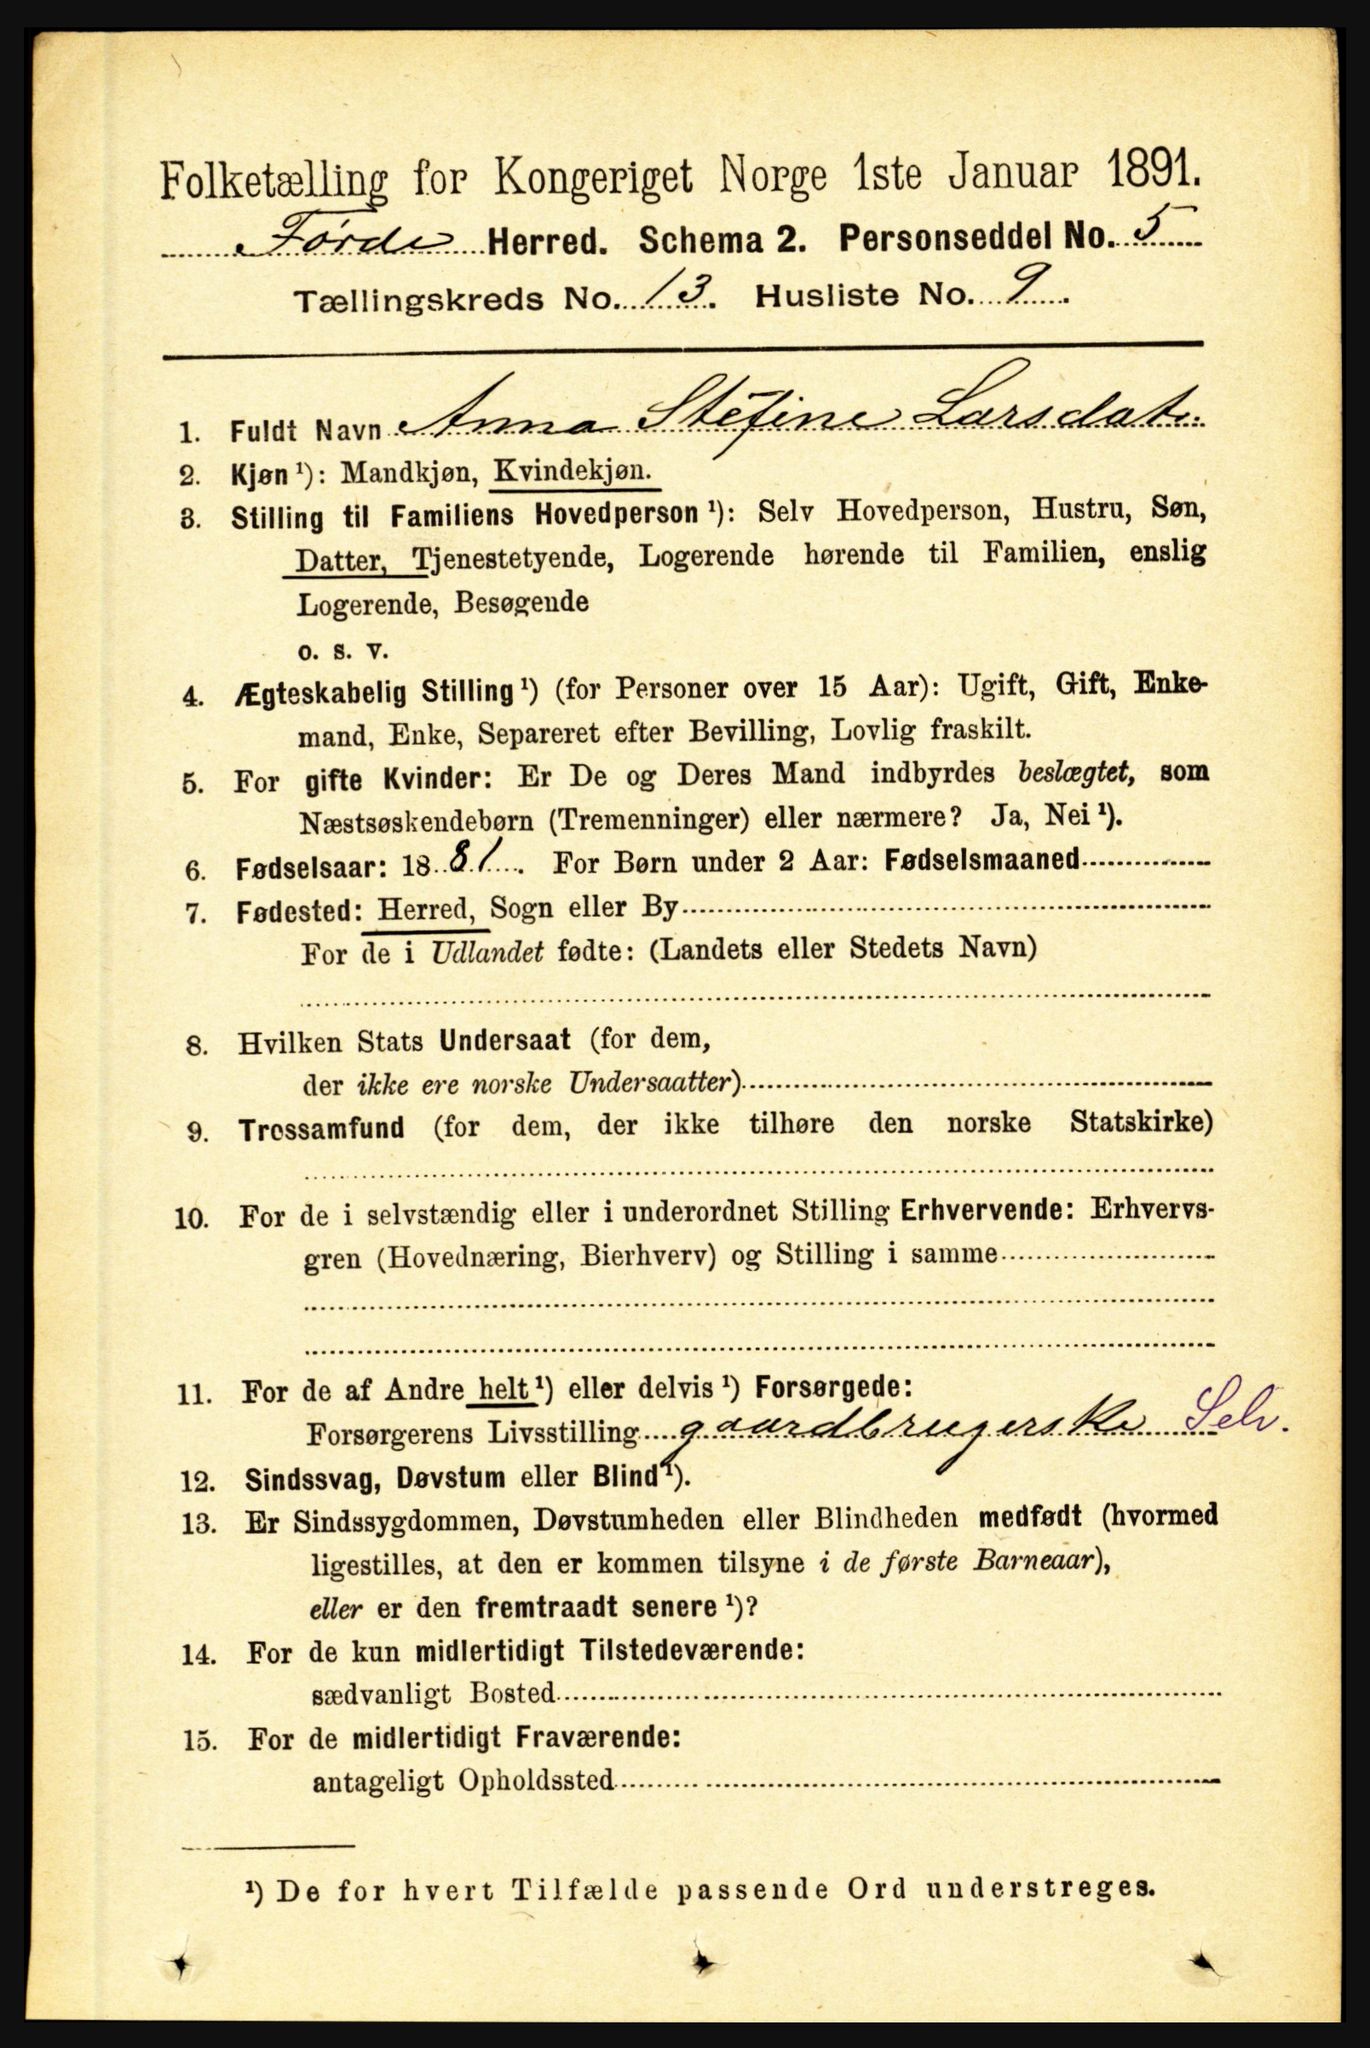 Folketælling for Kongeriget Norge 1ste Januar 1891.
Førde Herred. Schema 2. Personseddel No. 5
Tællingskreds No. 13. Husliste No. 9.
1. Fuldt Navn Anna Stefine Larsdatr.
2. Kjøn¹): Mandkjøn, Kvindekjøn.
3. Stilling til Familiens Hovedperson¹): Selv Hovedperson, Hustru, Søn,
Datter, Tjenestetyende, Logerende hørende til Familien, enslig
Logerende, Besøgende
o. s. v.
4. Ægteskabelig Stilling¹) (for Personer over 15 Aar): Ugift, Gift, Enke-
mand, Enke, Separeret efter Bevilling, Lovlig fraskilt.
5. For gifte Kvinder: Er De og Deres Mand indbyrdes beslægtet, som
Næstsøskendebørn (Tremenninger) eller nærmere? Ja, Nei¹).
6. Fødselsaar: 1881. For Børn under 2 Aar: Fødselsmaaned
7. Fødested: Herred, Sogn eller By
For de i Udlandet fødte: (Landets eller Stedets Navn)
8. Hvilken Stats Undersaat (for dem,
der ikke ere norske Undersaatter)
9. Trossamfund (for dem, der ikke tilhøre den norske Statskirke)
10. For de i selvstændig eller i underordnet Stilling Erhvervende: Erhvervs-
gren (Hovednæring, Bierhverv) og Stilling i samme
11. For de af Andre helt¹) eller delvis¹) Forsørgede:
Forsørgerens Livsstilling gaardbrugerske Selv.
12. Sindssvag, Døvstum eller Blind¹).
13. Er Sindssygdommen, Døvstumheden eller Blindheden medfødt (hvormed
ligestilles, at den er kommen tilsyne i de første Barneaar),
eller er den fremtraadt senere¹)?
14. For de kun midlertidigt Tilstedeværende:
sædvanligt Bosted
15. For de midlertidigt Fraværende:
antageligt Opholdssted
¹) De for hvert Tilfælde passende Ord understreges.